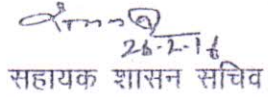 26-2-16
सहायक शासन सचिव